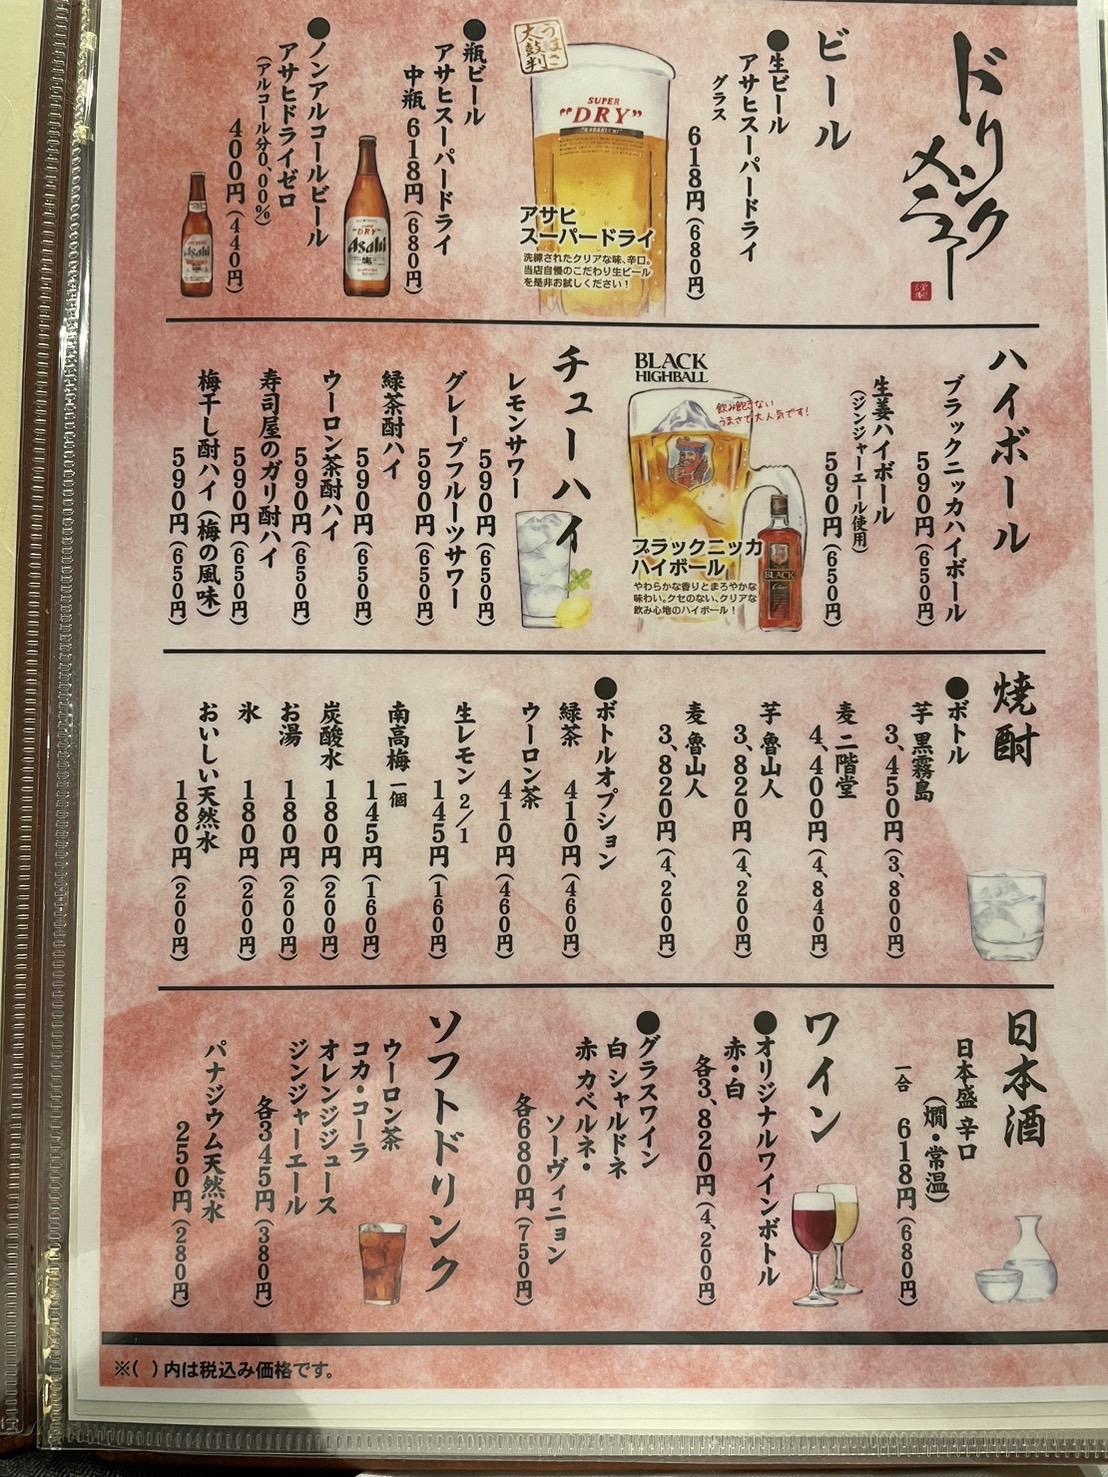 ドリンクメニュー
ビール
●生ビール
アサヒスーパードライ
グラス
618円(680円)
太鼓判
SUPER
"DRY"
アサヒ
スーパードライ
洗練されたクリアな味、辛口。
当店自慢のこだわり生ビール
を是非お試しください!
●瓶ビール
アサヒスーパードライ
中瓶 618円(680円)
"DRY"
Asahi
●ノンアルコールビール
アサヒドライゼロ
(アルコール分0.00%)
400円(440円)
Asahi
ハイボール
ブラックニッカハイボール
590円(650円)
生姜ハイボール
(ジンジャーエール使用)
590円(650円)
BLACK
HIGHBALL
飲み飽きない
うまさで大人気です!
BLACK
ブラックニッカ
ハイボール
やわらかな香りとまろやかな
味わい。クセのない、クリアな
飲み心地のハイボール!
チューハイ
レモンサワー
590円(650円)
グレープフルーツサワー
590円(650円)
緑茶酎ハイ
590円(650円)
ウーロン茶酎ハイ
590円(650円)
寿司屋のガリ酎ハイ
590円(650円)
梅干し酎ハイ(梅の風味)
590円(650円)
焼酎
●ボトル
芋 黒霧島
3、450円(3、800円)
麦 二階堂
4、400円(4、840円)
芋 魯山人
3、820円(4、200円)
麦 魯山人
3、820円(4、200円)
●ボトルオプション
緑茶 410円(460円)
ウーロン茶
410円(460円)
生レモン 2/1
145円(160円)
南高梅 一個
145円(160円)
炭酸水 180円(200円)
お湯 180円(200円)
氷 180円(200円)
おいしい天然水
180円(200円)
日本酒
日本盛 辛口
(燗・常温)
一合 618円(680円)
ワイン
●オリジナルワインボトル
赤・白
各3、820円(4、200円)
●グラスワイン
白 シャルドネ
赤 カベルネ・
ソーヴィニョン
各680円(750円)
ソフトドリンク
ウーロン茶
コカ・コーラ
オレンジジュース
ジンジャーエール
各345円(380円)
パナジウム天然水
250円(280円)
※( )内は税込み価格です。